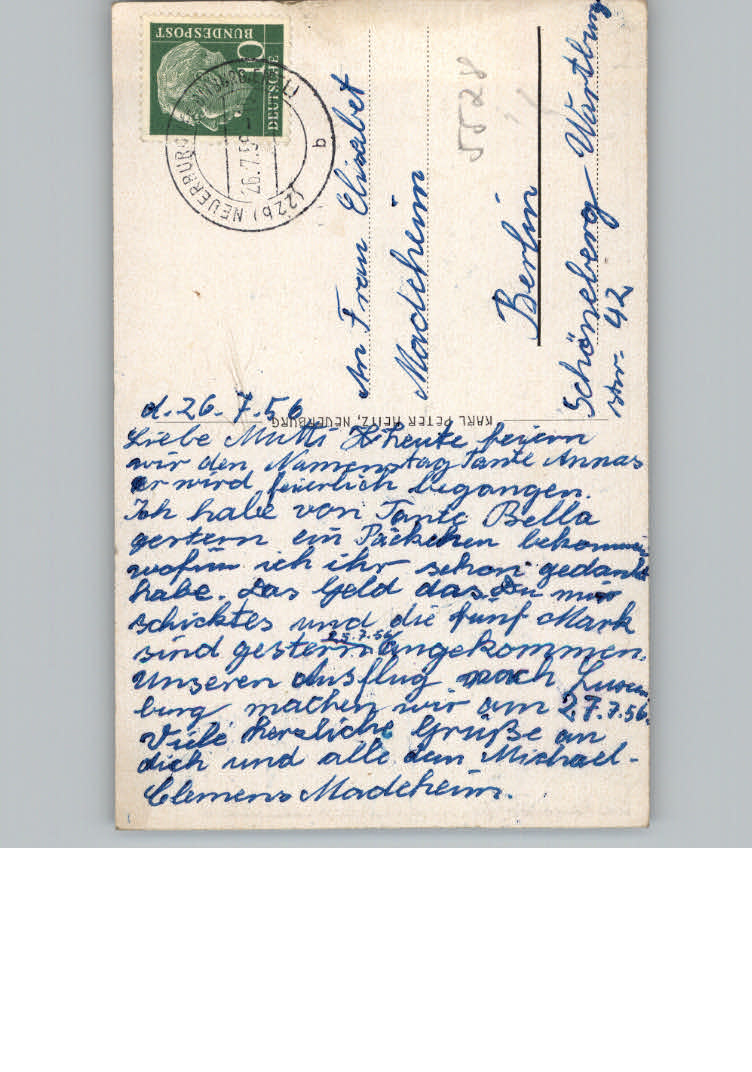 DEUTSCHE
BUNDESPOST
(22b) NEUERBURG
26.7.56
b
5528
An Frau Elisabet
Madeheim
Berlin
Schöneberg Wartburg
str. 42
KARL PETER HEITZ, NEUERBURG
d. 26. 7. 56
Liebe Mutti heute feiern
wir den Namenstag Tante Annas
er wird feierlich begangen.
Ich habe von Tante Bella
gestern ein Päckchen bekommen
wofür ich ihr schon gedankt
habe. Das Geld das Du mir
schicktes und die fünf Mark
25.7.56
sind gestern angekommen.
Unseren Ausflug nach Luxem
burg machen wir am 27.7.56.
Viele herzliche Grüße an
dich und alle dein Michael-
Clemens Madeheim.